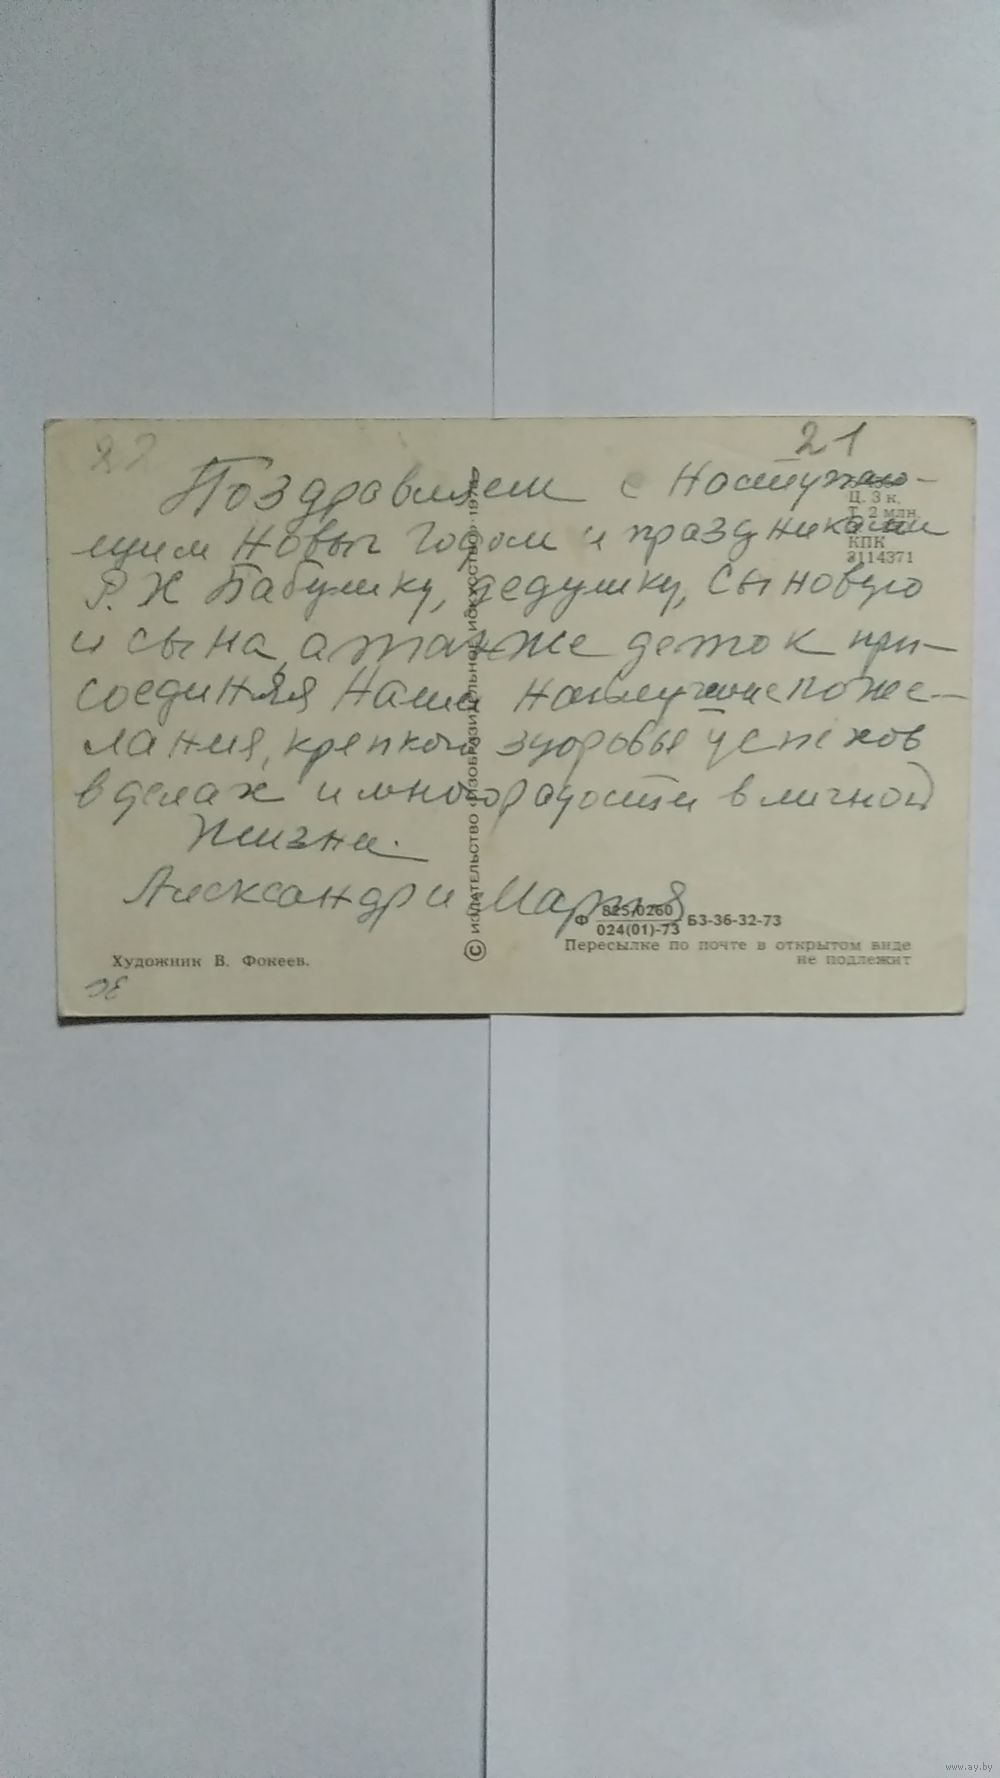 22
21
Поздравляем с Наступаю-
щим Новы Годом и праздниками
Р.Х Бабушку, дедушку, Сыновую
и сына, а также деток при-
соединяя Наши Наилучшие поже-
лания, крепкого здоровья успехов
в делах и много радости в личной
жизни.
Александр и Мария
Ц. 3 к.
Т. 2 млн.
КПК
3114371
© ИЗДАТЕЛЬСТВО «ИЗОБРАЗИТЕЛЬНОЕ ИСКУССТВО»
Ф 825/0260
024(01)-73 БЗ-36-32-73
Пересылке по почте в открытом виде
не подлежит
Художник В. Фокеев.
www.ay.by